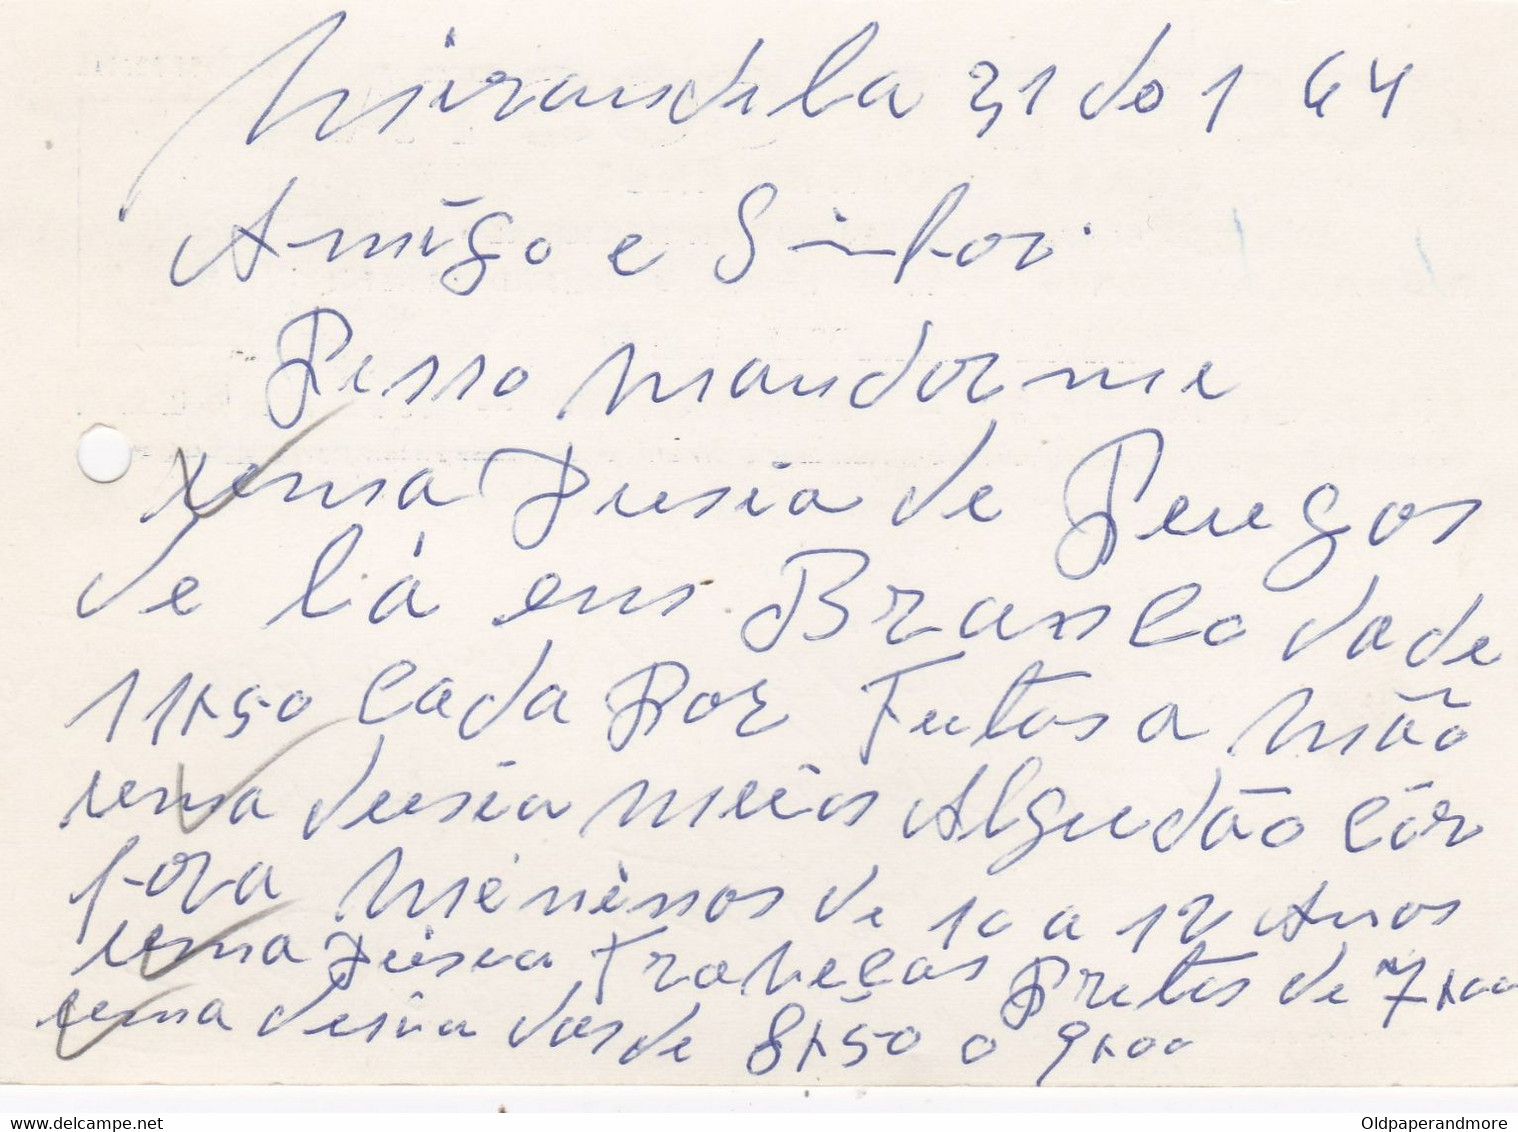 Mirandela 31 do 1 64
Amigo e Sinhor
Pesso mandarme
uma Dusia de Peugos
de lá em Branco da de
11$50 cada Por Feitos a Mão
uma dusia meias Algudão Côr
para Méninos de 10 a 12 Anos
uma Dusia Traveças Pretas de 7$00
uma dusia das de 8$50 o 9$00
Oldpaperandmore